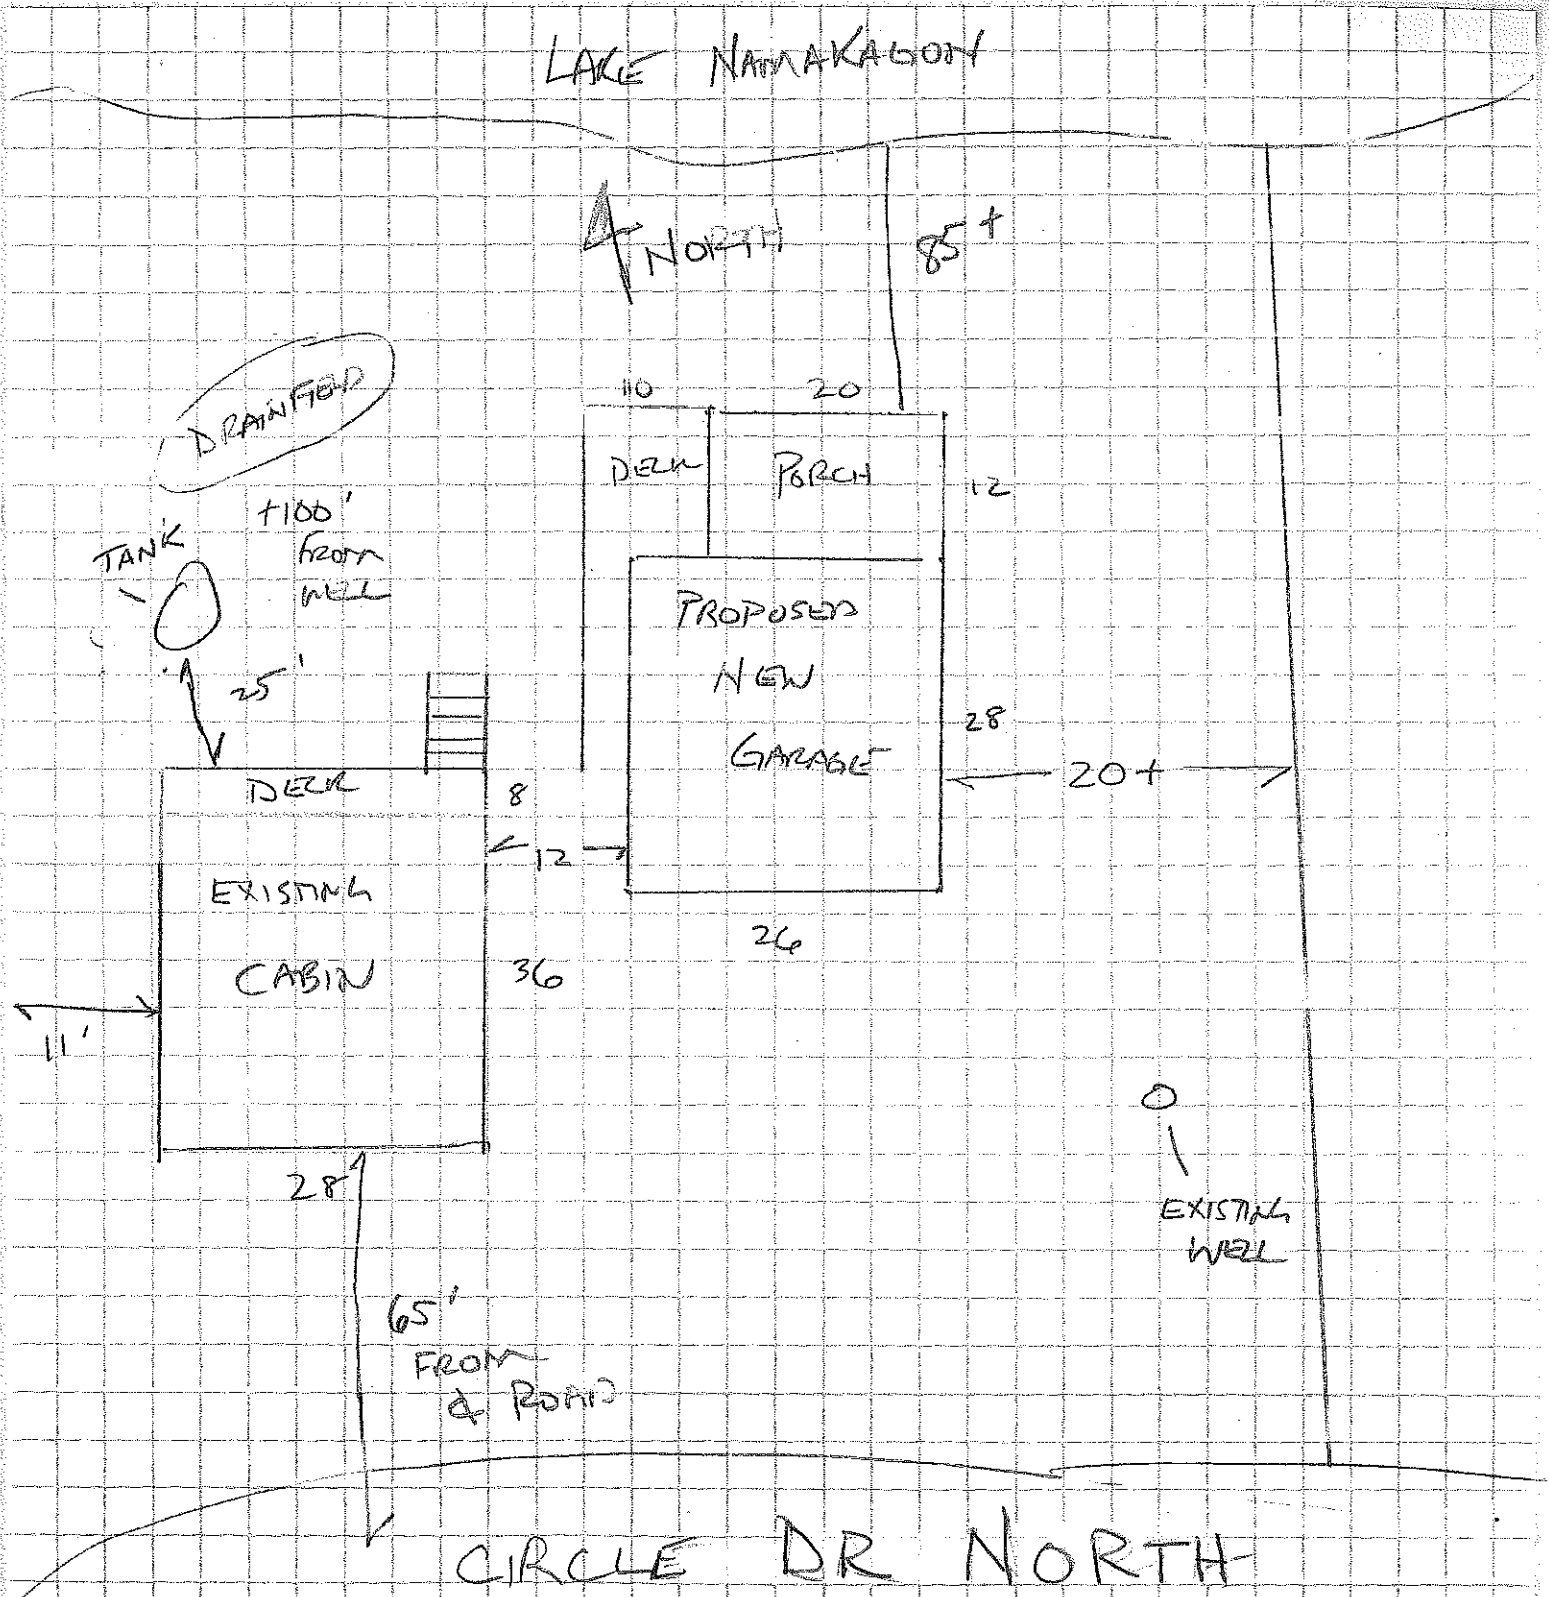 LAKE NAMAKAGON
NORTH
85+
DRAINFIELD
10
20
DECK
PORCH
12
+100'
FROM
WELL
TANK
25'
PROPOSED
NEW
GARAGE
28
20+
DECK
8
12
EXISTING
CABIN
36
26
11'
28
65'
FROM
ROAD
EXISTING
WELL
CIRCLE DR NORTH